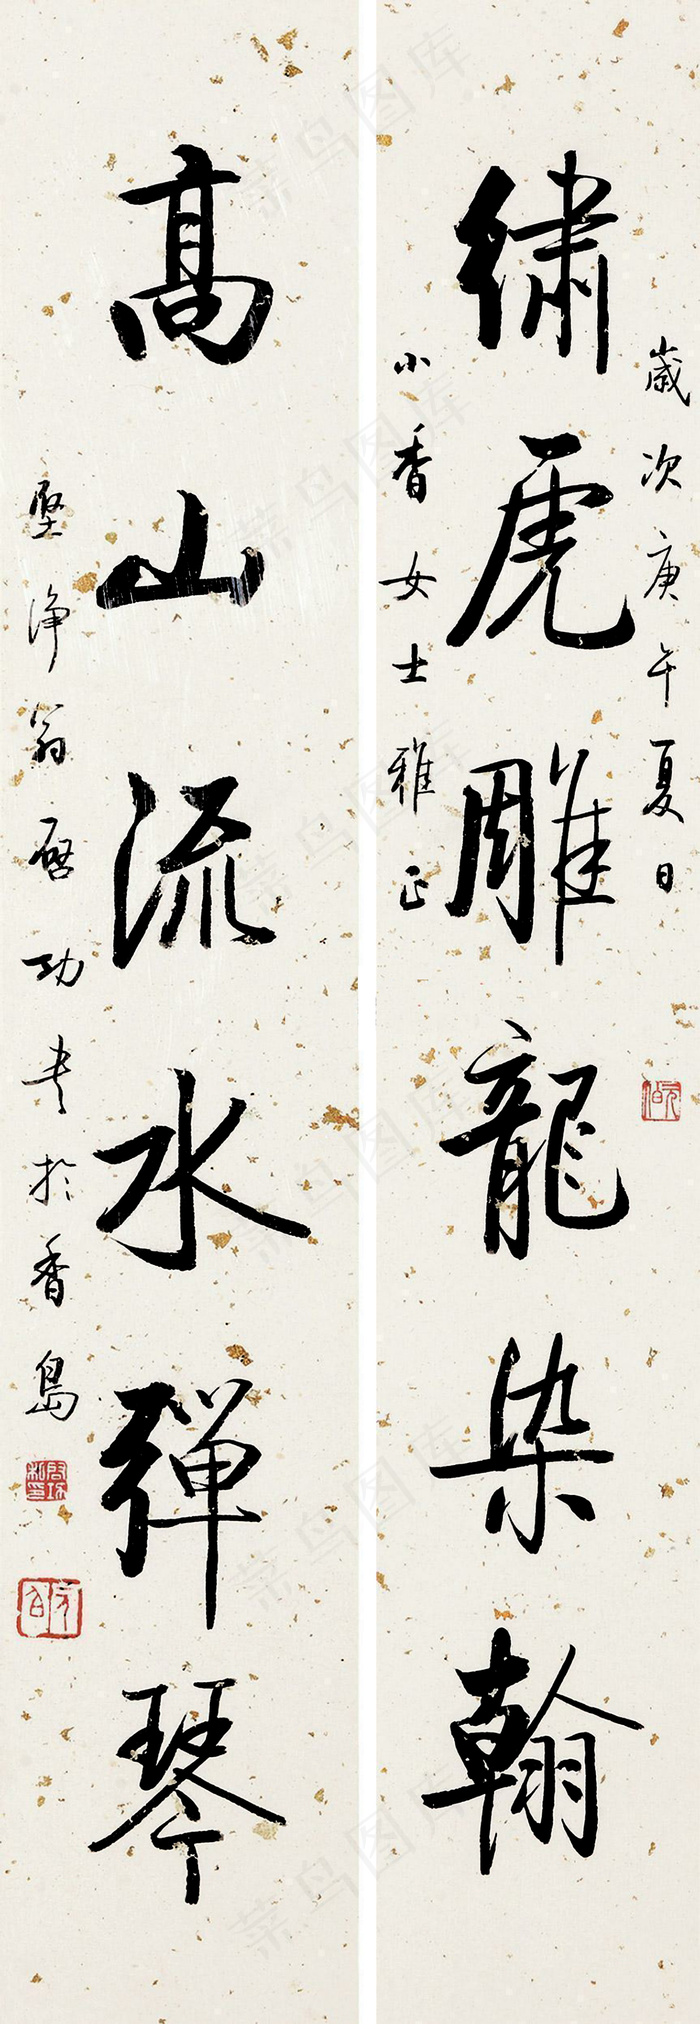 歲次庚午夏日
繡虎雕龍染翰
小香女士雅正
高山流水彈琴
堅淨翁啓功书於香島
菜鸟图库